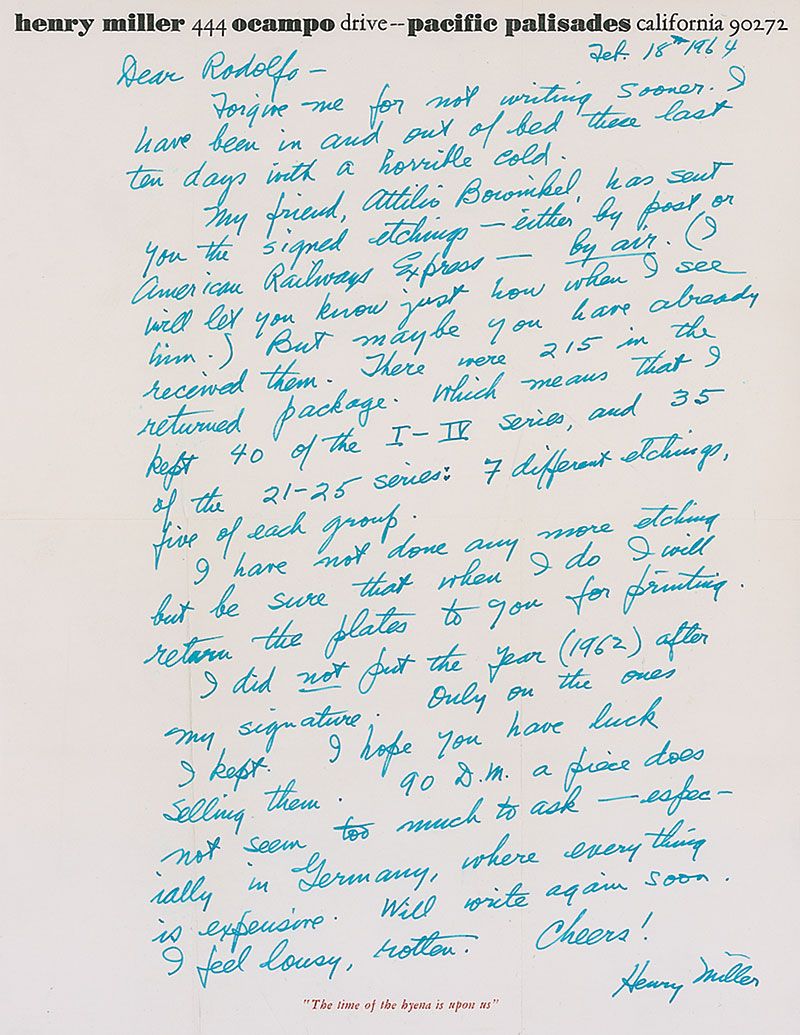 henry miller 444 ocampo drive--pacific palisades california 90272
Feb. 18th 1964
Dear Rodolfo —
Forgive me for not writing sooner. I
have been in and out of bed these last
ten days with a horrible cold.
My friend, Attilio Bowinkel, has sent
you the signed etchings — either by post or
American Railways Express — by air. (I
will let you know just how when I see
him.) But maybe you have already
received them. There were 215 in the
returned package. Which means that I
kept 40 of the I-IV series, and 35
of the 21-25 series: 7 different etchings,
five of each group.
I have not done any more etching
but be sure that when I do I will
return the plates to you for printing.
I did not put the year (1962) after
my signature. Only on the ones
I kept. I hope you have luck
selling them. 90 D.M. a piece does
not seem too much to ask — espec-
ially in Germany, where every thing
is expensive. Will write again soon.
I feel lousy, rotten. Cheers!
Henry Miller
"The time of the hyena is upon us"